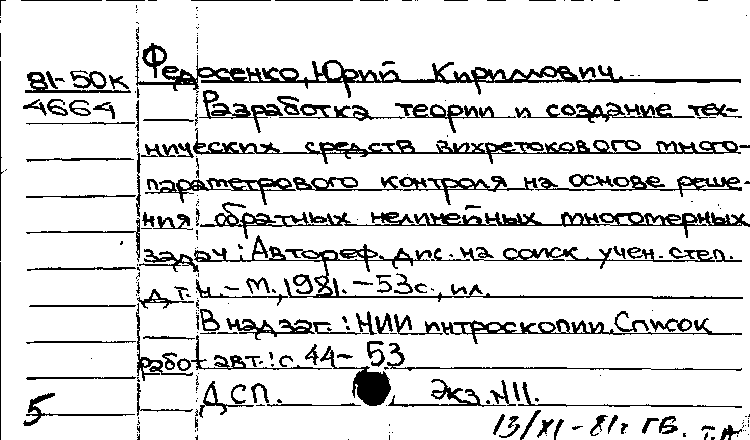 Федосенко, Юрий Кириллович.
81-50к
4664
Разработка теории и создание тех-
нических средств вихретокового много-
параметрового контроля на основе реше-
ния обратных нелинейных многомерных
задач : Автореф. дис. на соиск. учен. степ.
д.т.н. – М., 1981. – 53с., ил.
В надзаг. : НИИ интроскопии. Список
работ авт.: с. 44–53
ДСП. Экз. N11.
5
13/XI – 81г ГБ. т.А